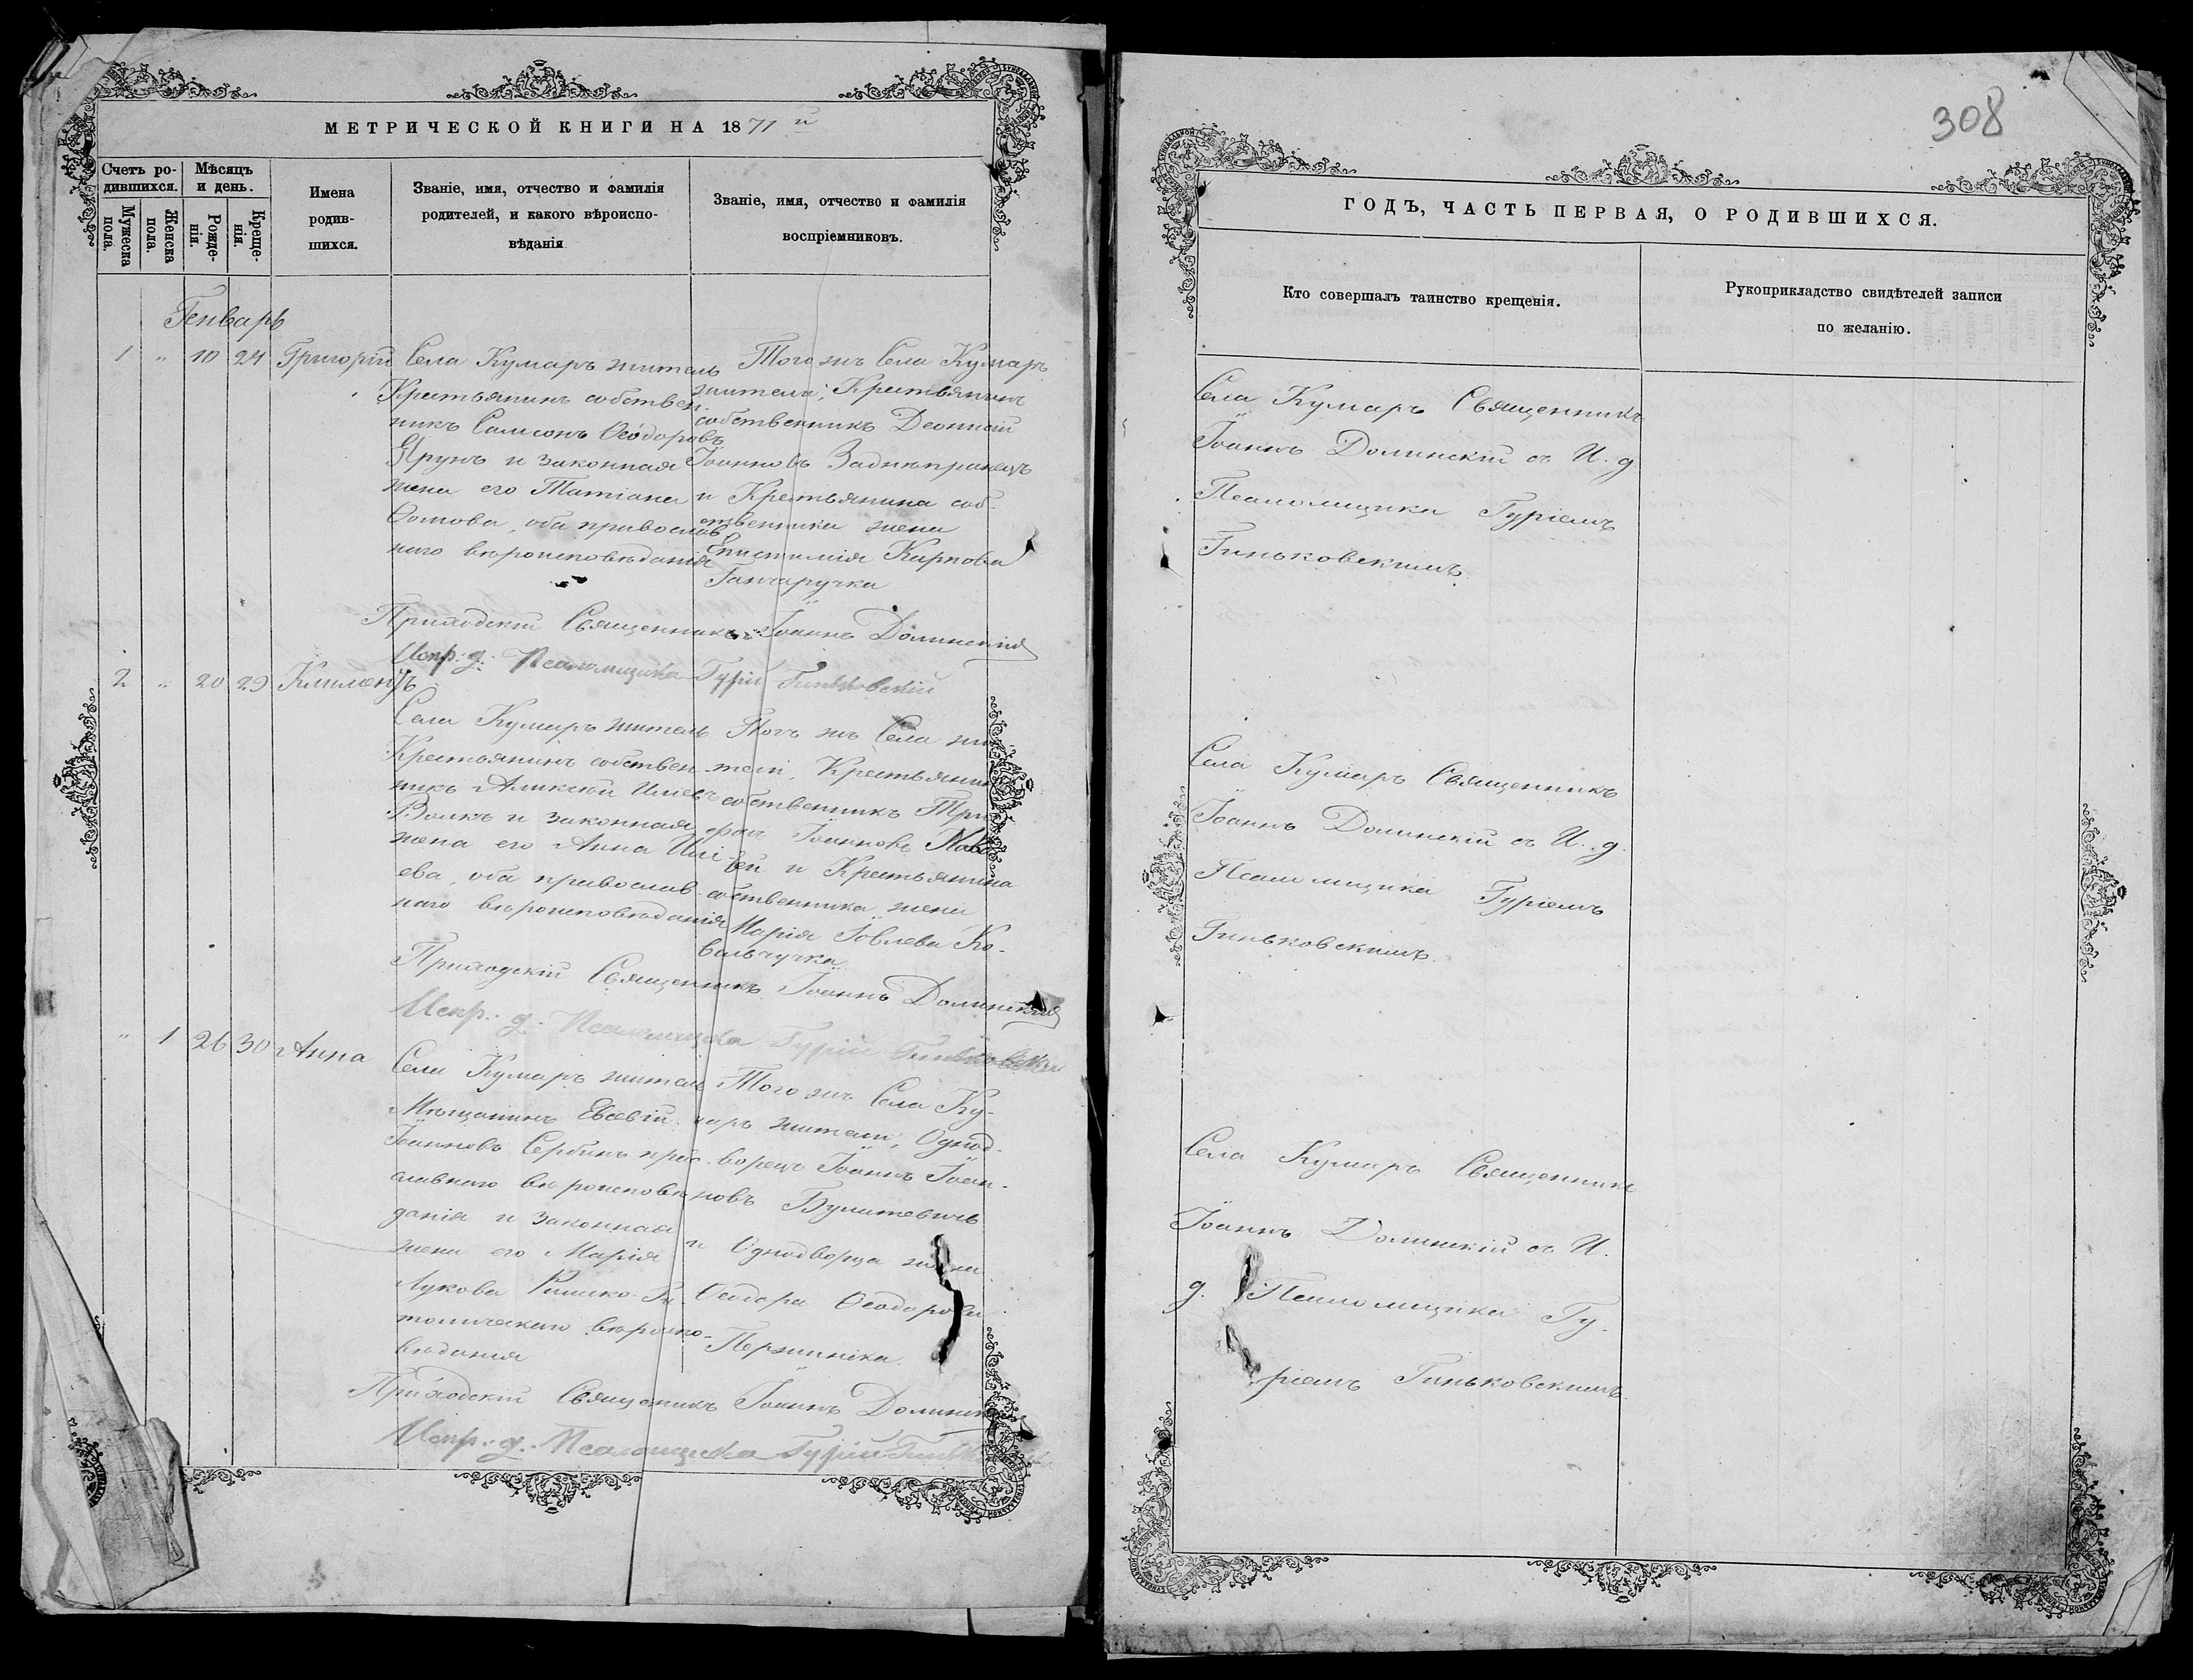 МЕТРИЧЕСКОЙ КНИГИ НА 1871 й
Счетъ ро-
дившихся.
Мѣсяцъ
и день.
Мужеска
пола.
Женска
пола.
Рожде-
нія.
Креще-
нія.
Имена
родив-
шихся.
Званіе, имя, отчество и фамилія
родителей, и какого вѣроиспо-
вѣданія
Званіе, имя, отчество и фамилія
воспріемниковъ.
Генварь
1 " 10 24 Григорій
Села Кумаръ житель
Крестьянинъ собствен-
никъ Самсонъ Ѳеодоровъ
Ярунъ и законная
жена его Татіана
Ѳомова, оба православ
наго вѣроисповѣданія
Того жъ Села Кумаръ
жители; Крестьянинъ
собственникъ Леонтій
Іоанновъ Заднѣпранецъ
и Крестьянина соб-
ственника жена
Епистимія Карпова
Ганчаручка
Приходскій Священникъ Іоаннъ Долинскій
Испр: д: Псаломщика Гурій Гиньковскій
2 " 20 29 Климентъ
Села Кумаръ житель
Крестьянинъ собствен-
никъ Алексій Иліевъ
Волкъ и законная
жена его Анна Илі-
ева, оба православ-
наго вѣроисповѣданія
Того жъ Села жи
тели, Крестьянинъ
собственникъ Три
фонъ Іоанновъ
и Крестьянина
собственника жена
Марія Іовлева Ко-
вальчучка
Приходскій Священникъ Іоаннъ Долинскій
Испр: д: Псаломщика Гурій Гиньковскій
" 1 26 30 Анна
Села Кумаръ житель
Мѣщанинъ Евсевій
Іоанновъ Сербинъ прав
славнаго вѣроисповѣ
данія и законная
жена его Марія
Лукова Римско-Ка
толическаго вѣроиспо-
вѣданія
Того жъ Села Ку-
маръ жители, Однод-
ворецъ Іоаннъ Іоан-
новъ Булатевичъ
и Однодворца жена
Ѳеодора Ѳеодорова
Приходскій Священникъ Іоаннъ Долинскій
Испр: д: Псаломщика Гурій
308
ГОДЪ, ЧАСТЬ ПЕРВАЯ, О РОДИВШИХСЯ.
Кто совершалъ таинство крещенія.
Рукоприкладство свидѣтелей записи
по желанію.
Села Кумаръ Священникъ
Іоаннъ Долинскій съ И. д.
Псаломщика Гуріемъ
Гиньковскимъ.
Села Кумаръ Священникъ
Іоаннъ Долинскій съ И. д.
Псаломщика Гуріемъ
Гиньковскимъ.
Села Кумаръ Священникъ
Іоаннъ Долинскій съ И.
д. Псаломщика Гу-
ріемъ Гиньковскимъ.